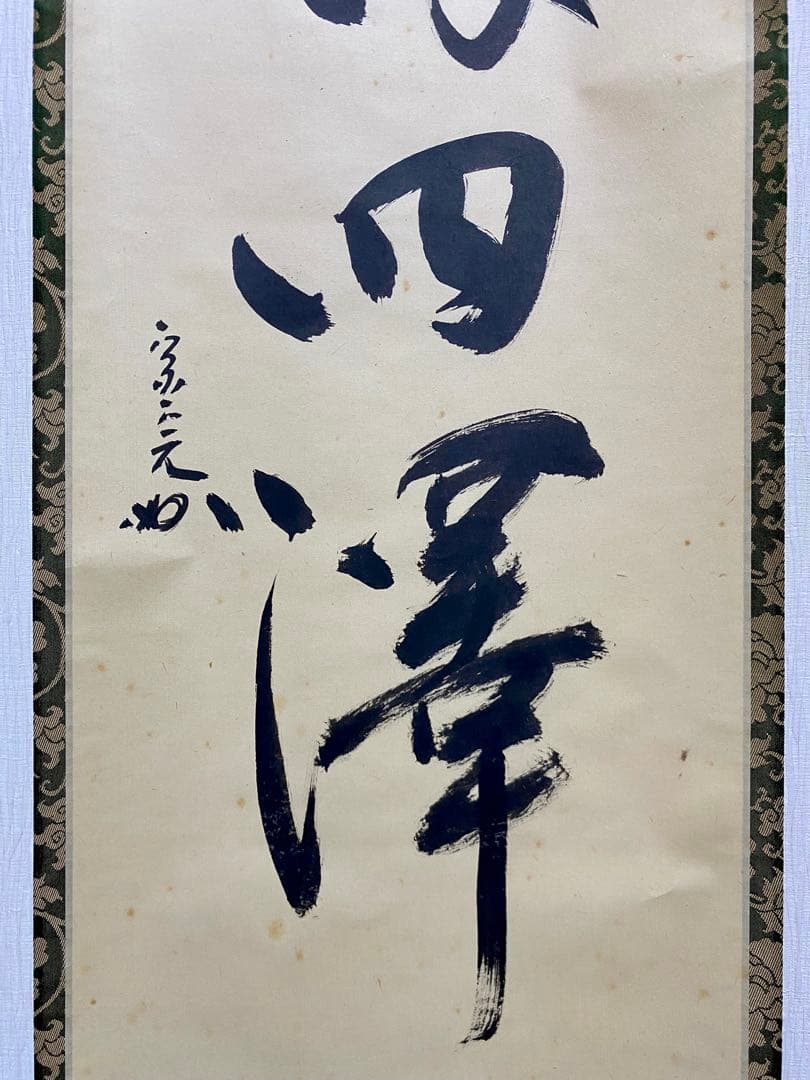 四澤
宗元